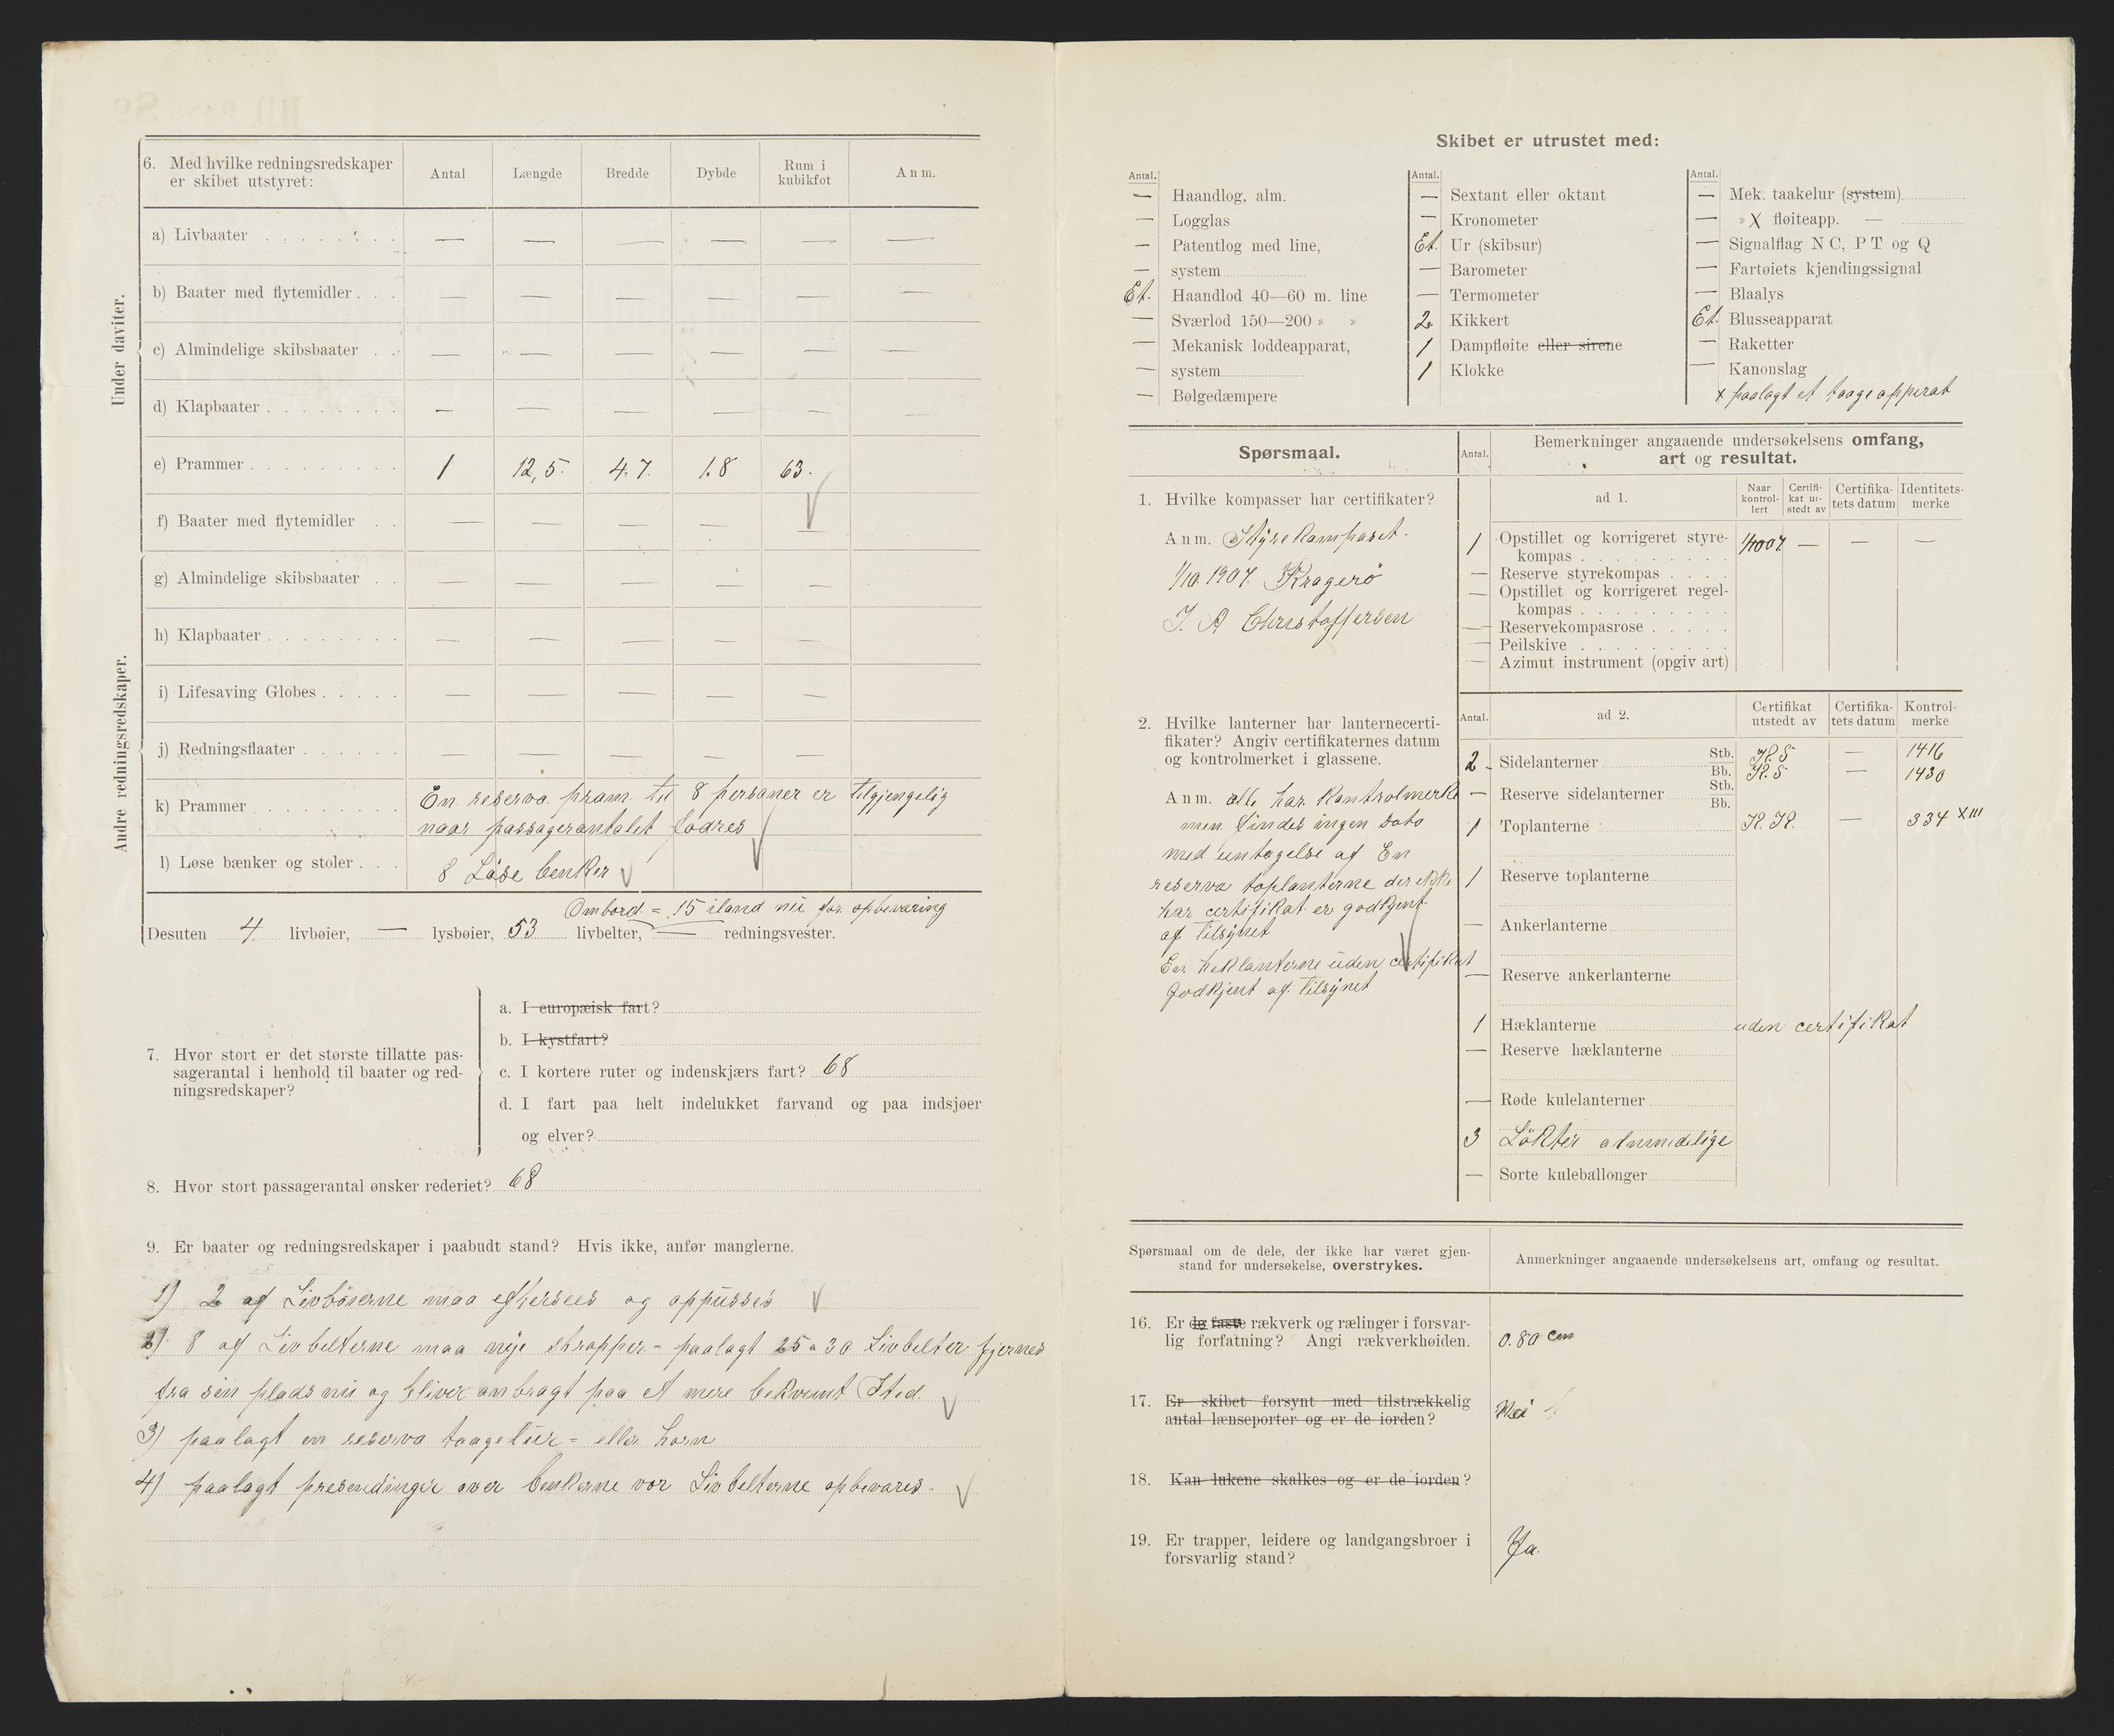 6. Med hvilke redningsredskaper
er skibet utstyret:
Antal Længde Bredde Dybde Rum i kubikfot Anm.
Under daviter.
a) Livbaater — — — — — —
b) Baater med flytemidler — — — — — —
c) Almindelige skibsbaater — — — — — —
d) Klapbaater — — — — — —
e) Prammer 1 12,5. 4.7. 1.8 63.
Andre redningsredskaper.
f) Baater med flytemidler — — — — —
g) Almindelige skibsbaater — — — — —
h) Klapbaater — — — — —
i) Lifesaving Globes — — — — —
j) Redningsflaater — — — — —
k) Prammer En reserva pram til 8 personer er tilgjengelig
naar passagerantalet fodres
l) Løse bænker og stoler 8 Löse benker
Ombord = 15 iland nu for opbevaring
Desuten 4 livbøier, — lysbøier, 53 livbelter, — redningsvester.
7. Hvor stort er det største tillatte pas-
sagerantal i henhold til baater og red-
ningsredskaper?
a. I europæisk fart?
b. I kystfart?
c. I kortere ruter og indenskjærs fart? 68
d. I fart paa helt indelukket farvand og paa indsjøer
og elver?
8. Hvor stort passagerantal ønsker rederiet? 68
9. Er baater og redningsredskaper i paabudt stand? Hvis ikke, anfør manglerne.
1) 2 af Livböierne maa eftersees og oppusses
2) 8 af Livbelterne maa nye stropper - paalagt 25 a 30 Livbelter fjernes
fra sin plads nu og bliver anbragt paa et mere bekvemt Sted.
3) paalagt en reserva taagelur = eller horn
4) paalagt presendinger over benkerne vor Livbelterne opbevares.
Skibet er utrustet med:
Antal.
— Haandlog, alm.
— Logglas
— Patentlog med line,
— system
Et. Haandlod 40—60 m. line
— Sværlod 150—200 » »
— Mekanisk loddeapparat,
— system
— Bølgedæmpere
Antal.
— Sextant eller oktant
— Kronometer
Et. Ur (skibsur)
— Barometer
— Termometer
2 Kikkert
1 Dampfløite eller sirene
1 Klokke
Antal.
— Mek. taakelur (system)
— » X fløiteapp. —
— Signalflag N C, P T og Q
— Fartøiets kjendingssignal
— Blaalys
Et. Blusseapparat
— Raketter
— Kanonslag
x paalagt et taageapperat
Spørsmaal.
Antal.
Bemerkninger angaaende undersøkelsens omfang,
art og resultat.
1. Hvilke kompasser har certifikater?
Anm. Styrekompaset.
1/10 1907. Kragerö
J. A Christoffersen
ad 1. Naar kontrol-lert Certifi-kat ut-stedt av Certifika-tets datum Identitets-merke
1 Opstillet og korrigeret styre-
kompas — — —
— Reserve styrekompas
— Opstillet og korrigeret regel-
kompas
— Reservekompasrose
— Peilskive
— Azimut instrument (opgiv art)
2. Hvilke lanterner har lanternecerti-
fikater? Angiv certifikaternes datum
og kontrolmerket i glassene.
Anm. alle har Kontrolmerke
men findes ingen Dato
med untagelse af En
reserva toplanterne der ikke
har certifikat er godkjent
af Tilsynet
En heklanterne uden certifikat
godkjent af Tilsynet
Antal. ad 2. Certifikat utstedt av Certifika-tets datum Kontrol-merke
2 Sidelanterner Stb. K. S — 1416
Bb. K. S — 1430
— Reserve sidelanterner Stb.
Bb.
1 Toplanterne K. K. — 334 XIII
1 Reserve toplanterne
— Ankerlanterne
— Reserve ankerlanterne
1 Hæklanterne uden certifikat
— Reserve hæklanterne
— Røde kulelanterner
3 Lökter almindelige
— Sorte kuleballonger
Spørsmaal om de dele, der ikke har været gjen-
stand for undersøkelse, overstrykes.
Anmerkninger angaaende undersøkelsens art, omfang og resultat.
16. Er de faste rækverk og rælinger i forsvar-
lig forfatning? Angi rækverkhøiden.
0.80 cm
17. Er skibet forsynt med tilstrækkelig
antal lænseporter og er de iorden?
Nei
18. Kan lukene skalkes og er de iorden?
19. Er trapper, leidere og landgangsbroer i
forsvarlig stand?
Ja.